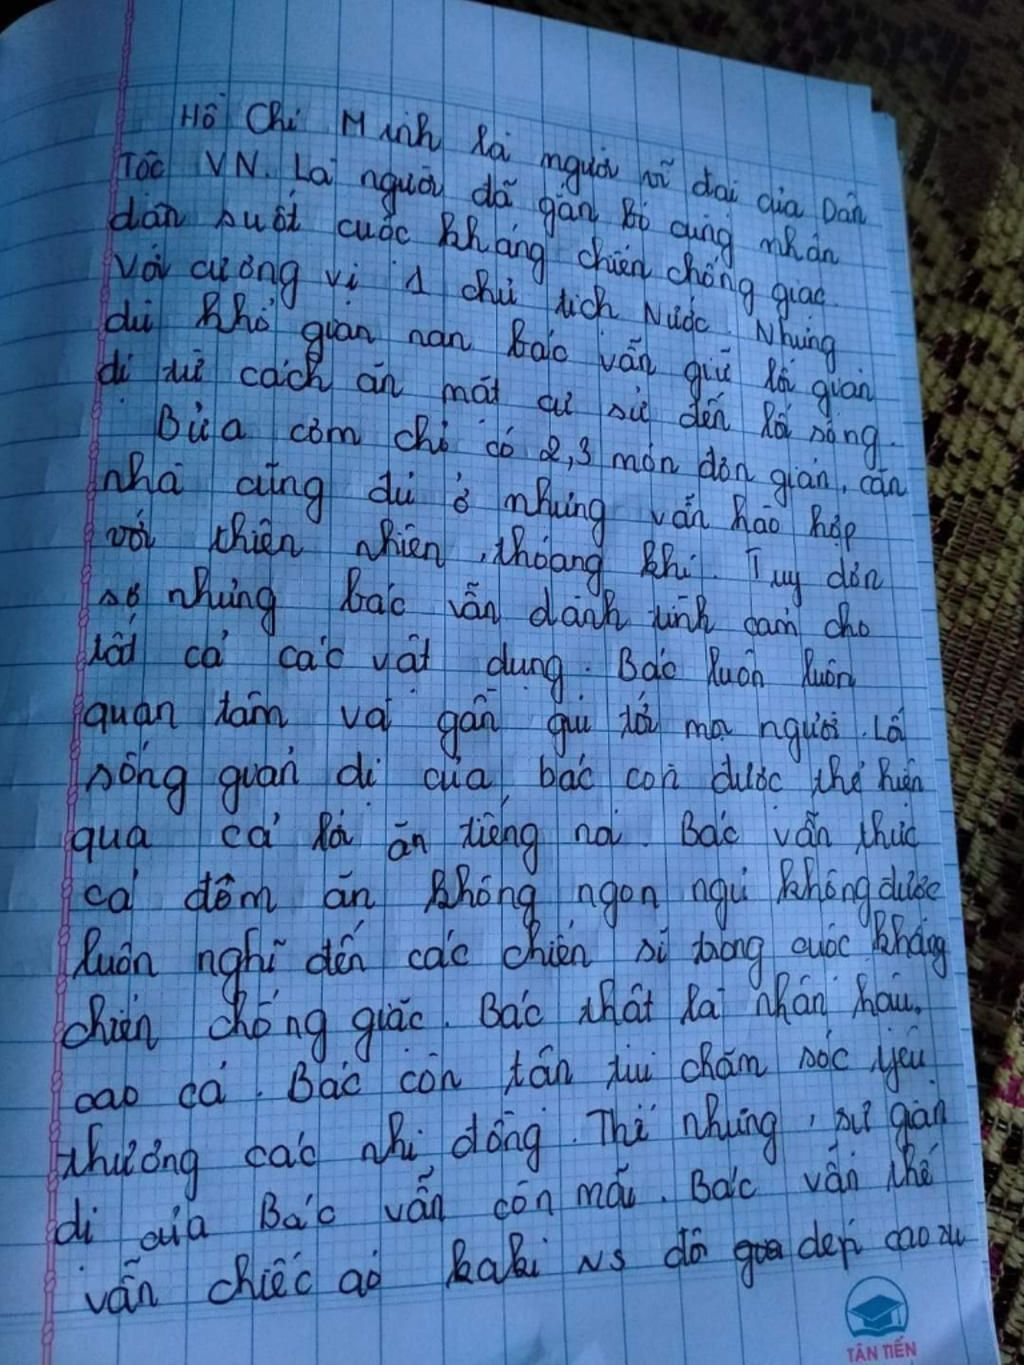 Hồ Chí Minh là người vĩ đại của Dân
Tộc VN. Là người đã gắn bó cùng nhân
dân suốt cuộc kháng chiến chống giặc
với cương vị 1 chủ tịch Nước. Nhưng
dù khó gian nan bác vẫn giữ lối giản
dị từ cách ăn mặt cư sử đến lối sống.
Bửa cơm chỉ có 2,3 món đơn giản, căn
nhà cũng dù ở nhưng vẫn hào hợp
với thiên nhiên, thoáng khí. Tuy đơn
sơ nhưng bác vẫn dành tình cảm cho
tất cả các vật dụng. Bác luôn luôn
quan tâm và gần gũi tới mọi người. Lối
sống giản dị của bác còn được thể hiện
qua cả lối ăn tiếng nói. Bác vẫn thức
cả đêm ăn không ngon ngủ không được
luôn nghĩ đến các chiến sĩ trong cuộc kháng
chiến chống giặc. Bác thật là nhân hậu,
cao cả. Bác còn tận tụi chăm sóc yêu
thương các nhi đồng. Thế nhưng, sự giản
dị của Bác vẫn còn mãi. Bác vẫn thế
vẫn chiếc áo kaki đôi dép cao su
TÂN TIẾN